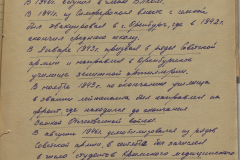 В 1940г.
В 1941г. из
был эвакуирован в г. Оренбург, где в 1942г.
окончил среднюю школу.
В Январе 1943г. призван в ряды Советской
армии и направлен в Оренбургское
училище зенитной артиллерии.
В ноябре 1943г. по окончанию училища
в звании лейтенанта был направлен на
фронт, где находился до окончания
Великой Отечественной войны.
В августе 1946г. демобилизовался из рядов
Советской армии, в сентябре был зачислен
в число студентов Крымского медицинского